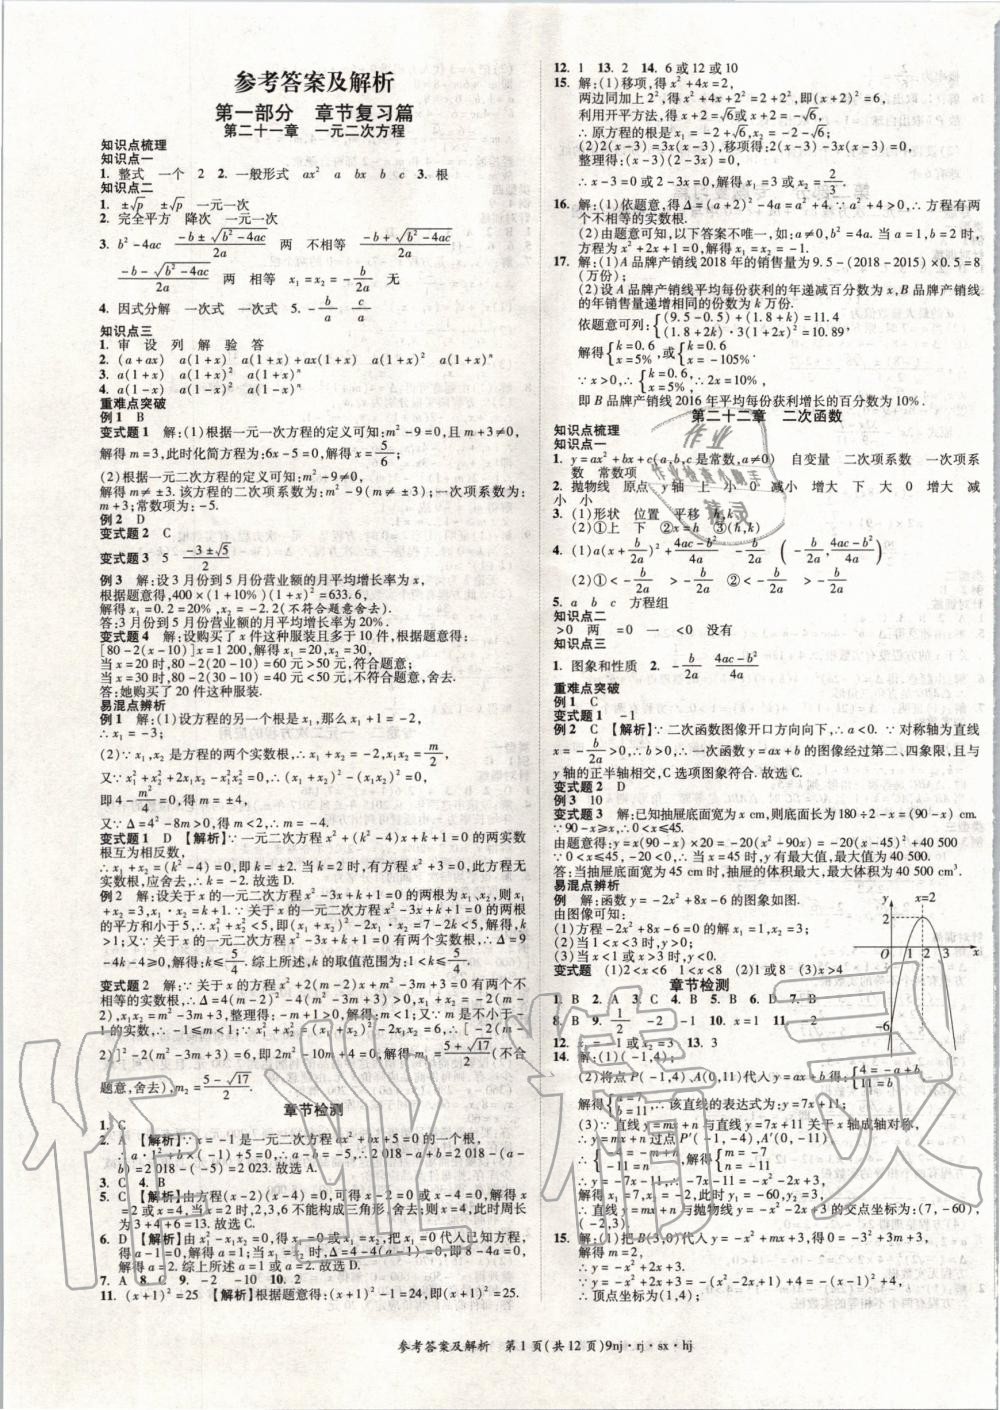 参考答案及解析
第一部分 章节复习篇
第二十一章 一元二次方程
知识点梳理
知识点一
1. 整式 一个 2 2. 一般形式 ax² a bx b c 3. 根
知识点二
1. ±√p ±√p 一元一次
2. 完全平方 降次 一元一次
3. b²-4ac (-b±√(b²-4ac))/2a 两 不相等 (-b+√(b²-4ac))/2a
(-b-√(b²-4ac))/2a 两 相等 x₁=x₂=-b/2a 无
4. 因式分解 一次式 一次式 5. -b/a c/a
知识点三
1. 审 设 列 解 验 答
2. (a+ax) a(1+x) a(1+x)+ax(1+x) a(1+x)² a(1+x)ⁿ
3. a(1+x) a(1+x)² a(1+x)ⁿ
4. a(1-x) a(1-x)² a(1-x)ⁿ
重难点突破
例1 B
变式题1 解:(1)根据一元一次方程的定义可知:m²-9=0,且m+3≠0,
解得m=3,此时化简方程为:6x-5=0,解得:x=5/6;
(2)根据一元二次方程的定义可知:m²-9≠0,
解得m≠±3.该方程的二次项系数为:m²-9(m≠±3);一次项系数为:
m+3;常数项为:-5.
例2 D
变式题2 C
变式题3 5 (-3±√5)/2
例3 解:设3月份到5月份营业额的月平均增长率为x,
根据题意得,400×(1+10%)(1+x)²=633.6,
解得x₁=0.2=20%,x₂=-2.2(不符合题意舍去).
答:3月份到5月份营业额的月平均增长率为20%.
变式题4 解:设购买了x件这种服装且多于10件,根据题意得:
[80-2(x-10)]x=1 200,解得:x₁=20,x₂=30,
当x=20时,80-2(20-10)=60元>50元,符合题意;
当x=30时,80-2(30-10)=40元<50元,不符合题意,舍去.
答:她购买了20件这种服装.
易混点辨析
例1 解:(1)设方程的另一个根是x₁,那么x₁+1=-2,
∴x₁=-3;
(2)∵x₁,x₂是方程的两个实数根,∴x₁+x₂=-2,x₁·x₂=m/2,
又∵x₁²+x₂²+2x₁x₂-x₁²x₂²=0,∴(x₁+x₂)²-(x₁x₂)²=0,
即4-m²/4=0,解得:m=±4,
又∵Δ=4²-8m>0,得m<2,∴m=-4.
变式题1 D 【解析】∵一元二次方程x²+(k²-4)x+k+1=0的两实数
根互为相反数,
∴x₁+x₂=-(k²-4)=0,即k=±2,当k=2时,方程有x²+3=0,此方程无
实数根,应舍去,∴取k=-2.故选D.
例2 解:设关于x的一元二次方程x²-3x+k+1=0的两根为x₁,x₂,则x₁
+x₂=3,x₁·x₂=k+1.∵关于x的一元二次方程x²-3x+k+1=0的两根
的平方和小于5,∴x₁²+x₂²<5,即(x₁+x₂)²-2x₁·x₂=7-2k<5,解得,k
>1;又∵关于x的一元二次方程x²-3x+k+1=0有两个实数根,∴Δ=9
-4k-4≥0,解得:k≤5/4.综上所述,k的取值范围为:1<k≤5/4.
变式题2 解:∵关于x的方程x²+2(m-2)x+m²-3m+3=0有两个不
相等的实数根,∴Δ=4(m-2)²-4(m²-3m+3)>0,x₁+x₂=-2(m-
2),x₁x₂=m²-3m+3,整理得:-m+1>0,解得:m<1;又∵m是不小于-
1的实数,∴-1≤m<1;∵x₁²+x₂²=(x₁+x₂)²-2x₁x₂=6,∴[-2(m-
2)]²-2(m²-3m+3)=6,即2m²-10m+4=0,解得m₁=(5+√17)/2(不合
题意,舍去),m₂=(5-√17)/2.
章节检测
1. C
2. A 【解析】∵x=-1是一元二次方程ax²+bx+5=0的一个根,
∴a·1²+b×(-1)+5=0,∴a-b=-5,∴2 018-a+b=2 018-(a-
b)=2 018-(-5)=2 023.故选A.
3. C 4. B
5. C 【解析】由方程(x-2)(x-4)=0,可得x-2=0或x-4=0,解得x
=2或x=4,当x=2时,2,3,6不能构成三角形,舍去;当x=4时,则周长为
3+4+6=13.故选C.
6. D 【解析】由x₁-x₁x₂=0,得x₁=0或x₂=1,把x₁=0代入已知方程,
得a-1=0,解得:a=1;当x₁=x₂时,Δ=4-4(a-1)=0,即8-4a=0,
解得:a=2.综上所述,a=1或a=2.故选D.
7. A 8. C 9. -2 -10 10. 2
11. (x+1)²=25 【解析】根据题意得:(x+1)²-1=24,即(x+1)²=25.
12. 1 13. 2 14. 6或12或10
15. 解:(1)移项,得x²+4x=2,
两边同加上2²,得x²+4x+2²=2+2²,即(x+2)²=6,
利用开平方法,得x+2=√6或x+2=-√6,
∴原方程的根是x₁=-2+√6,x₂=-2-√6;
(2)2(x-3)=3x(x-3),移项得:2(x-3)-3x(x-3)=0,
整理得:(x-3)(2-3x)=0,
∴x-3=0或2-3x=0,解得:x₁=3或x₂=2/3.
16. 解:(1)依题意,得Δ=(a+2)²-4a=a²+4,∵a²+4>0,∴方程有两
个不相等的实数根.
(2)由题意可知,以下答案不唯一,如:b²=4a.当a=1,b=2时,
方程为x²+2x+1=0,解得x₁=x₂=-1.
17. 解:(1)A品牌产销线2018年的销售量为9.5-(2018-2015)×0.5=8
(万份);
(2)设A品牌产销线平均每份获利的年递减百分数为x,B品牌产销线
的年销售量递增相同的份数为k万份.
依题意可列:{(9.5-0.5)+(1.8+k)=11.4
(1.8+2k)·3(1+2x)²=10.89,
解得{k=0.6 x=5%,或{k=0.6 x=-105%.
∵x>0,∴{k=0.6, x=5%,∴2x=10%,
即B品牌产销线2016年平均每份获利增长的百分数为10%.
第二十二章 二次函数
知识点梳理
知识点一
1. y=ax²+bx+c(a,b,c是常数,a≠0) 自变量 二次项系数 一次项系
数 常数项
2. 抛物线 原点 y轴 上 小 0 减小 增大 下 大 0 增大 减
小 小
3. (1)形状 位置 平移 h,k
(2)①上 下 ②x=h ③(h,k)
4. (1)a(x+b/2a)²+(4ac-b²)/4a -b/2a (-b/2a,(4ac-b²)/4a)
(2)①<-b/2a >-b/2a ②<-b/2a >-b/2a
5. a b c 方程组
知识点二
>0 两 =0 一 <0 没有
知识点三
1. 图象和性质 2. -b/2a (4ac-b²)/4a
重难点突破
例1 C
变式题1 -1
例2 C 【解析】∵二次函数图像开口方向向下,∴a<0.∵对称轴为直线
x=-b/2a>0,∴b>0,∴一次函数y=ax+b的图像经过第二、四象限,且与
y轴的正半轴相交,C选项图象符合.故选C.
变式题2 D
例3 10
变式题3 解:已知抽屉底面宽为x cm,则底面长为180÷2-x=(90-x)cm.
∵90-x≥x,∴0<x≤45.
由题意得:y=x(90-x)×20=-20(x²-90x)=-20(x-45)²+40 500
∵0<x≤45,-20<0,∴当x=45时,y有最大值,最大值为40 500.
答:当抽屉底面宽为45 cm时,抽屉的体积最大,最大体积为40 500 cm³.
易混点辨析
例 解:函数y=-2x²+8x-6的图象如图.
由图像可知:
(1)方程-2x²+8x-6=0的解x₁=1,x₂=3;
(2)当1<x<3时,y>0;
(3)当x<1或x>3时,y<0.
变式题 (1)2<x<6 1<x<8 (2)1或8 (3)x>4
y
x=2
2
O
1 2 3 x
-6
章节检测
1. B 2. A 3. C 4. B 5. B 6. D 7. B
8. B 9. 1/2 -2 -1 10. x=1 11. -2
12. x₁=-1或x₂=3 13. 3
14. 解:(1)(-1,4);
(2)将点P(-1,4),A(0,11)代入y=ax+b得:{4=-a+b 11=b,
解得{a=7 b=11,∴该直线的表达式为:y=7x+11;
(3)∵直线y=mx+n与直线y=7x+11关于x轴成轴对称,
∴y=mx+n过点P′(-1,-4),A′(0,-11),
∴{-4=-m+n -11=n,解得{m=-7 n=-11,
∴y=-7x-11,∴-7x-11=-x²-2x+3,
解得x₁=7,x₂=-2,此时y₁=-60,y₂=3,
∴直线y=mx+n与抛物线y=-x²-2x+3的交点坐标为:(7,-60),
(-2,3).
15. 解:(1)把B(3,0)代入y=-x²+mx+3,得0=-3²+3m+3,
解得m=2,
∴y=-x²+2x+3,
∵y=-x²+2x+3=-(x²-2x+1)+4=-(x-1)²+4,
∴顶点坐标为(1,4);
参考答案及解析 第1页(共12页)9nj·rj·sx·hj
作业精灵